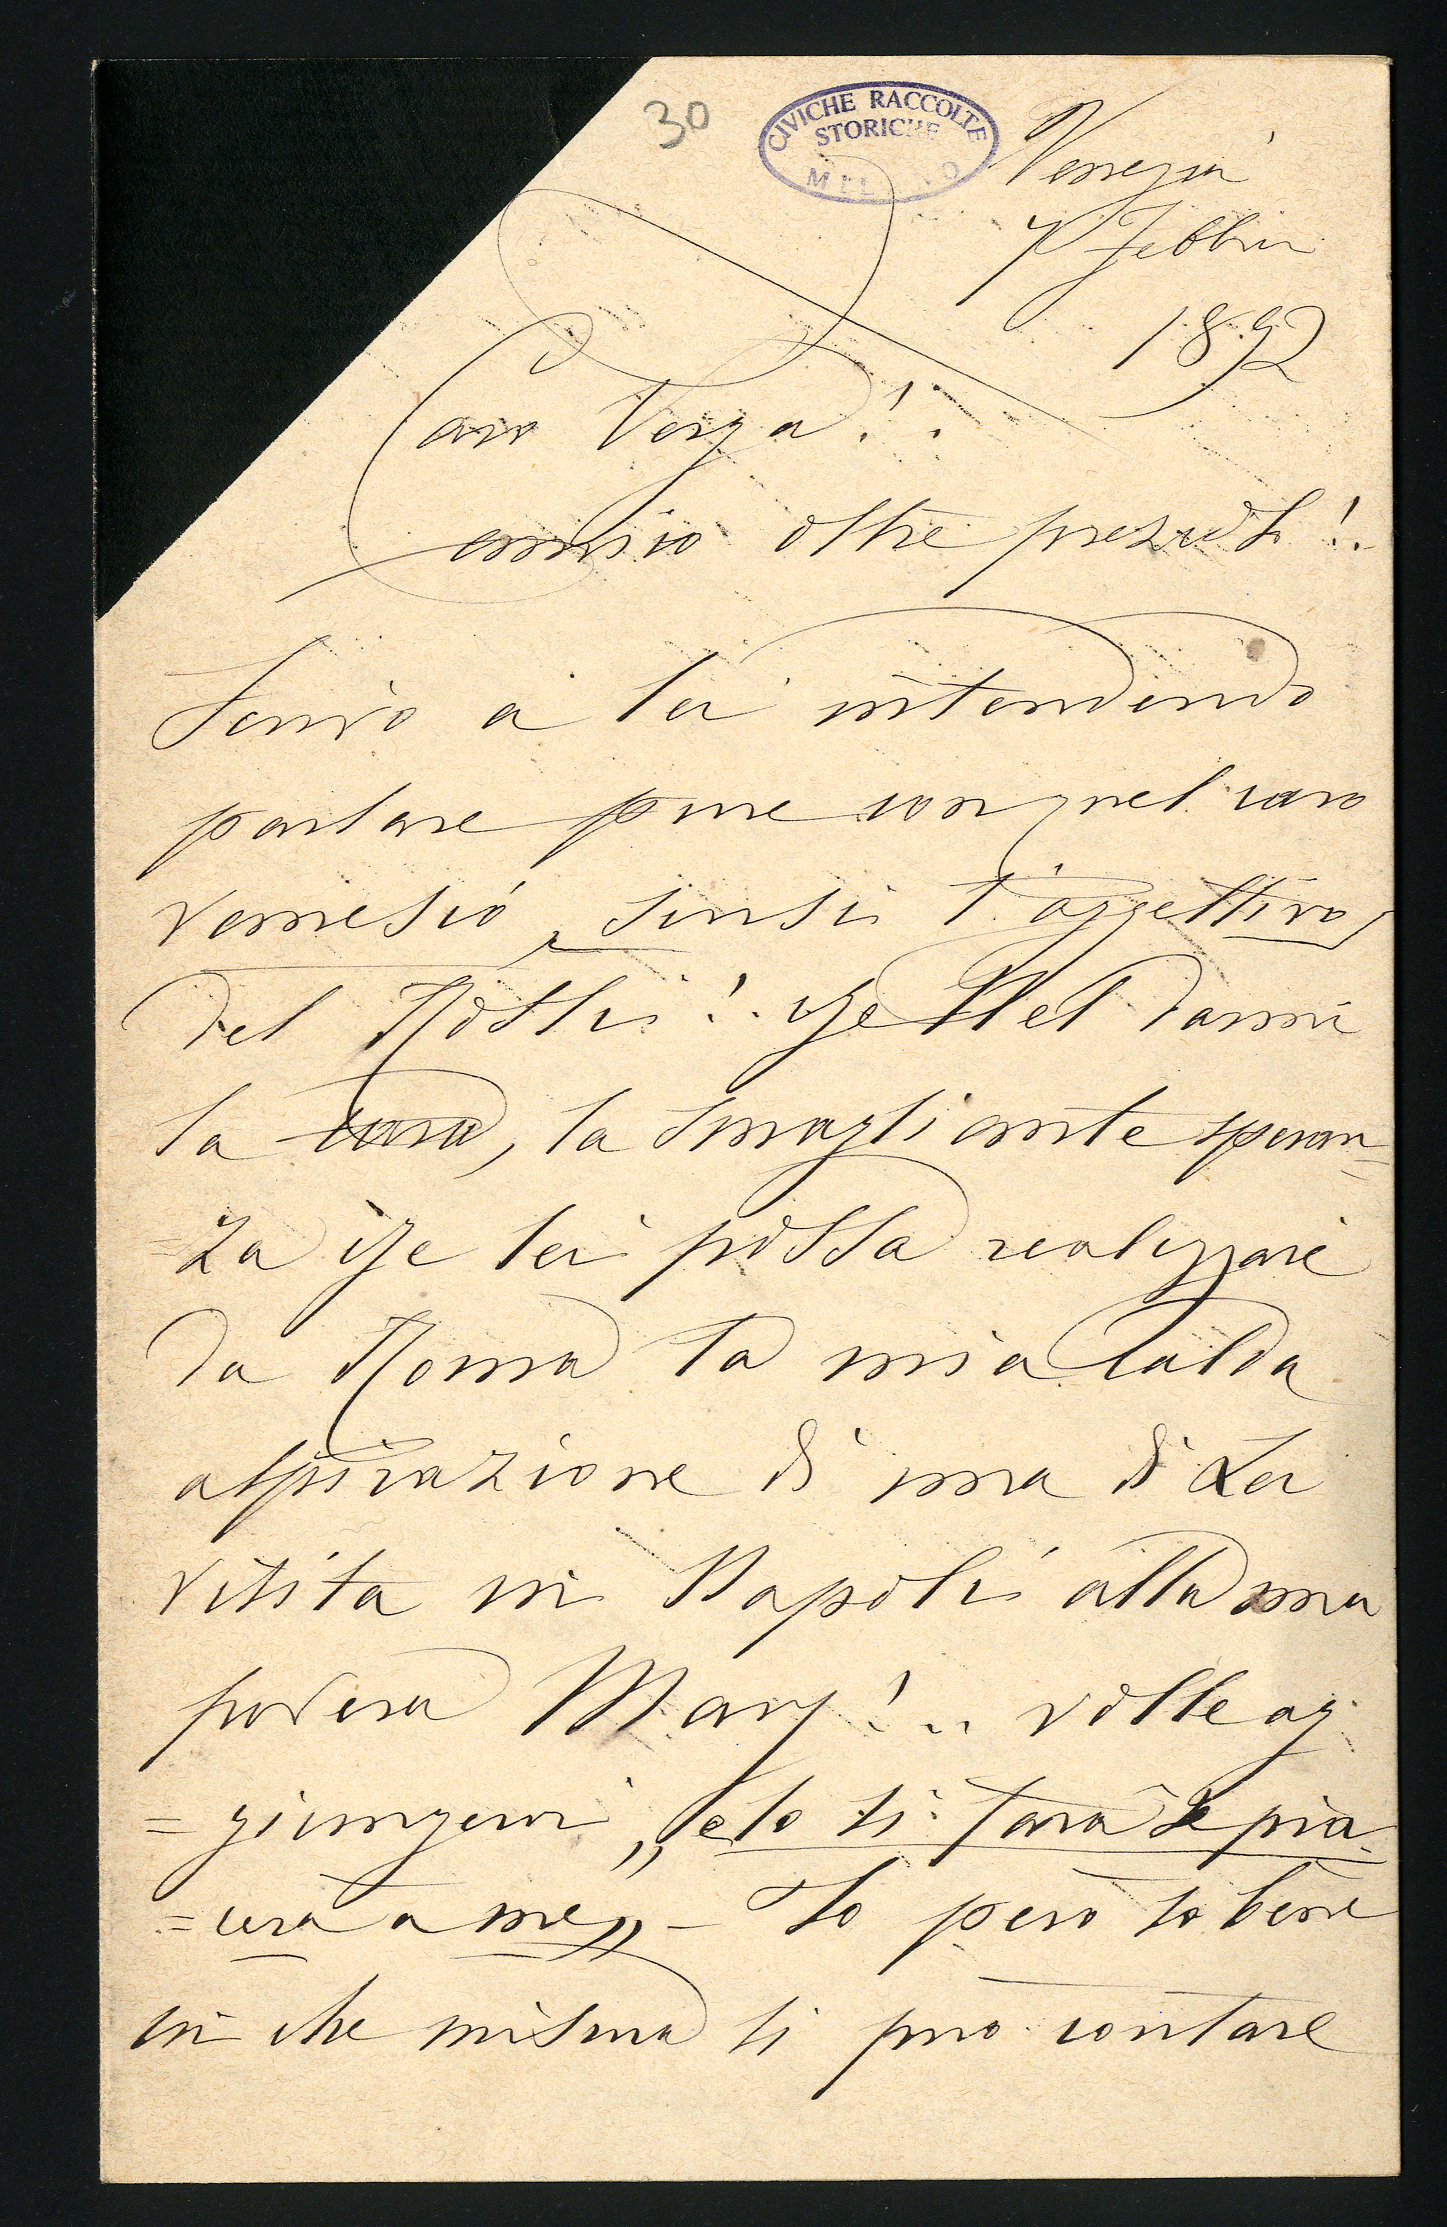 30
CIVICHE RACCOLTE
STORICHE
MILANO
Venezia
7 Febbrio
1892
Caro Verga!.
amico oltre prezioso!.
Scrivo a lei intendendo
parlare pure con quel caro
scusi l'aggettivo
del Rossi!. che nel darmi
la cara, la smagliante speran=
=za che lei possa realizzare
da Roma la mia calda
aspirazione di una di Lei
visita in Napoli alla mia
povera Mary!.. volle ag
=giungervi „ e lo si farà se pia
=cerà a me „ - Io però so bene
in che misura si può contare